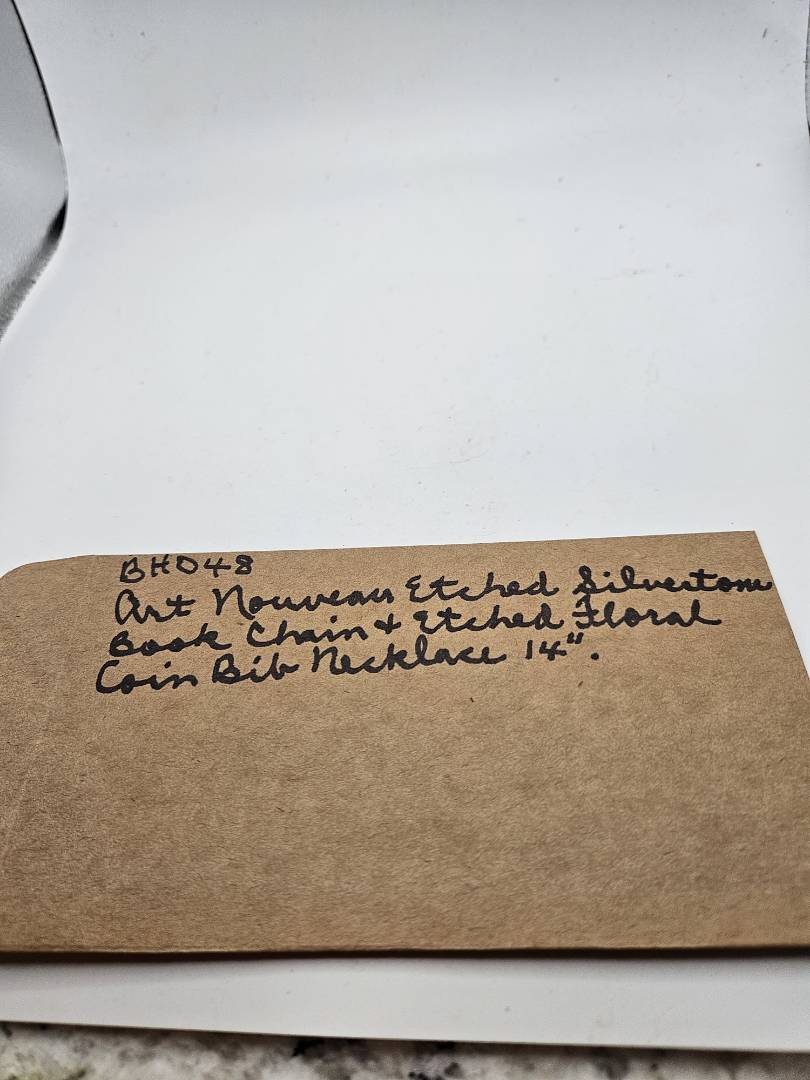 BHD48
Art Nouveau Etched Silvertone
Book Chain & Etched Floral
Coin Bib Necklace 14".